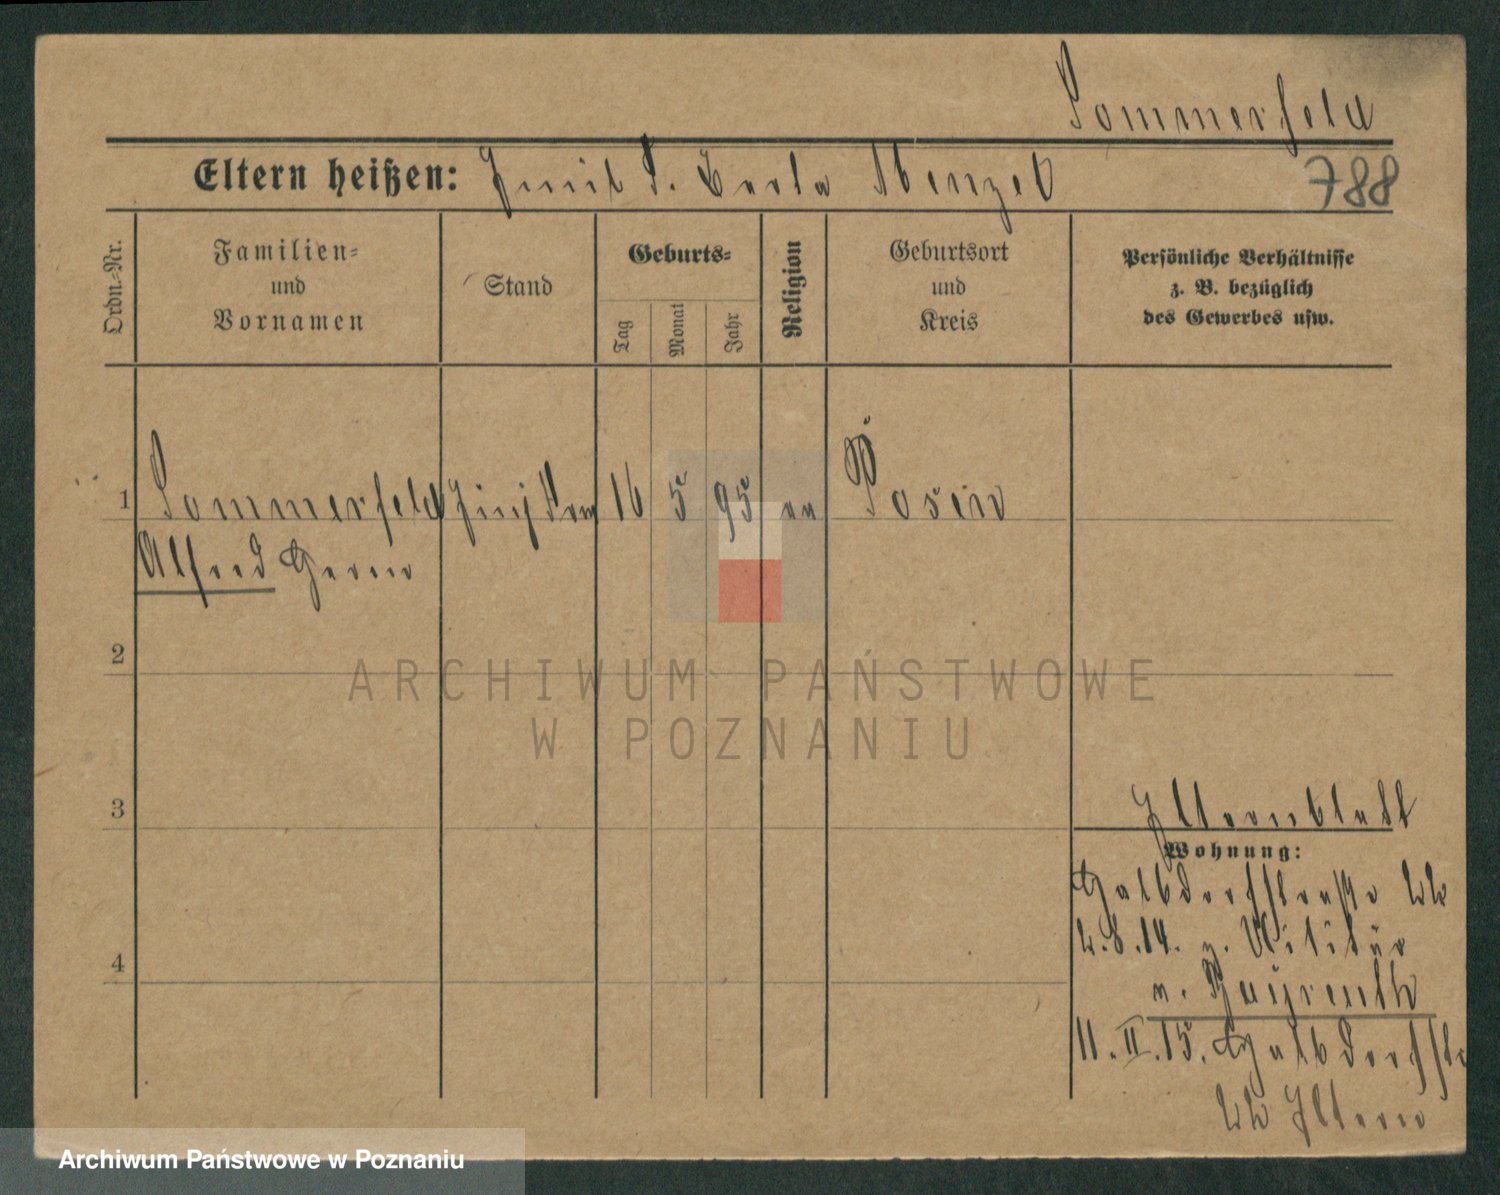 Sommerfeld
Eltern heißen: Emil S. Berta Wenzel
788
Ordn.-Nr.
Familien-
und
Vornamen
Stand
Geburts-
Tag
Monat
Jahr
Religion
Geburtsort
und
Kreis
Persönliche Verhältnisse
z. B. bezüglich
des Gewerbes usw.
1 Sommerfeld 16 5 95 Posen
Alfred Georg
2
3
Elternblatt
Wohnung:
Halbdorfstraße
8.14. z. Militär
n. Bayreuth
4
11.II.15. Halbdorfstr
Eltern
ARCHIWUM PAŃSTWOWE
W POZNANIU
Archiwum Państwowe w Poznaniu